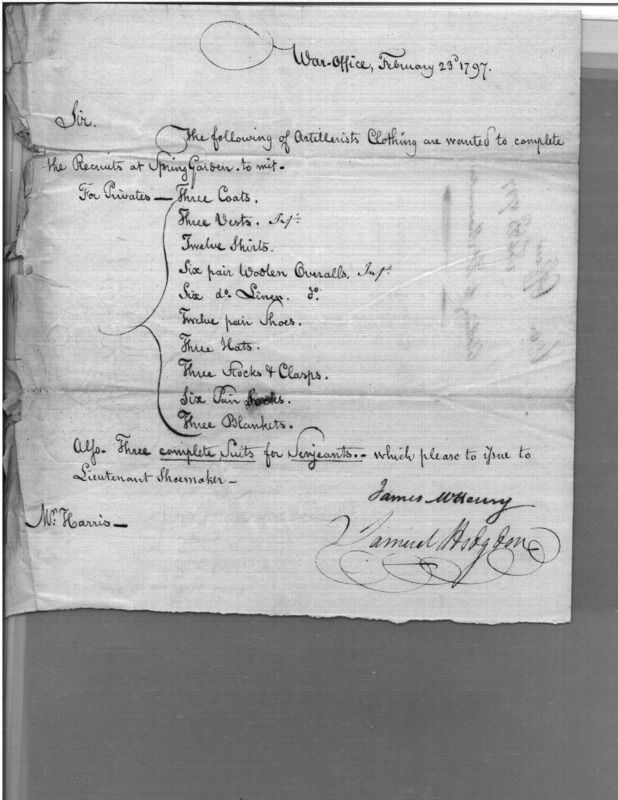 War-Office, February 23d 1797.
Sir.
The following of Artillerists Clothing are wanted to complete
the Recruits at Spring Garden. to wit-
For Privates — Three Coats.
Three Vests. Infy.
Twelve Shirts.
Six pair Woolen Overalls, Infy.
Six do. Linen. do.
Twelve pair Shoes.
Three Hats.
Three Stocks & Clasps.
Six Pair Socks.
Three Blankets.
Also- Three complete Suits for Serjeants.- which please to issue to
Lieutenant Shoemaker—
James McHenry
Mr. Harris—
Samuel Hodgdon